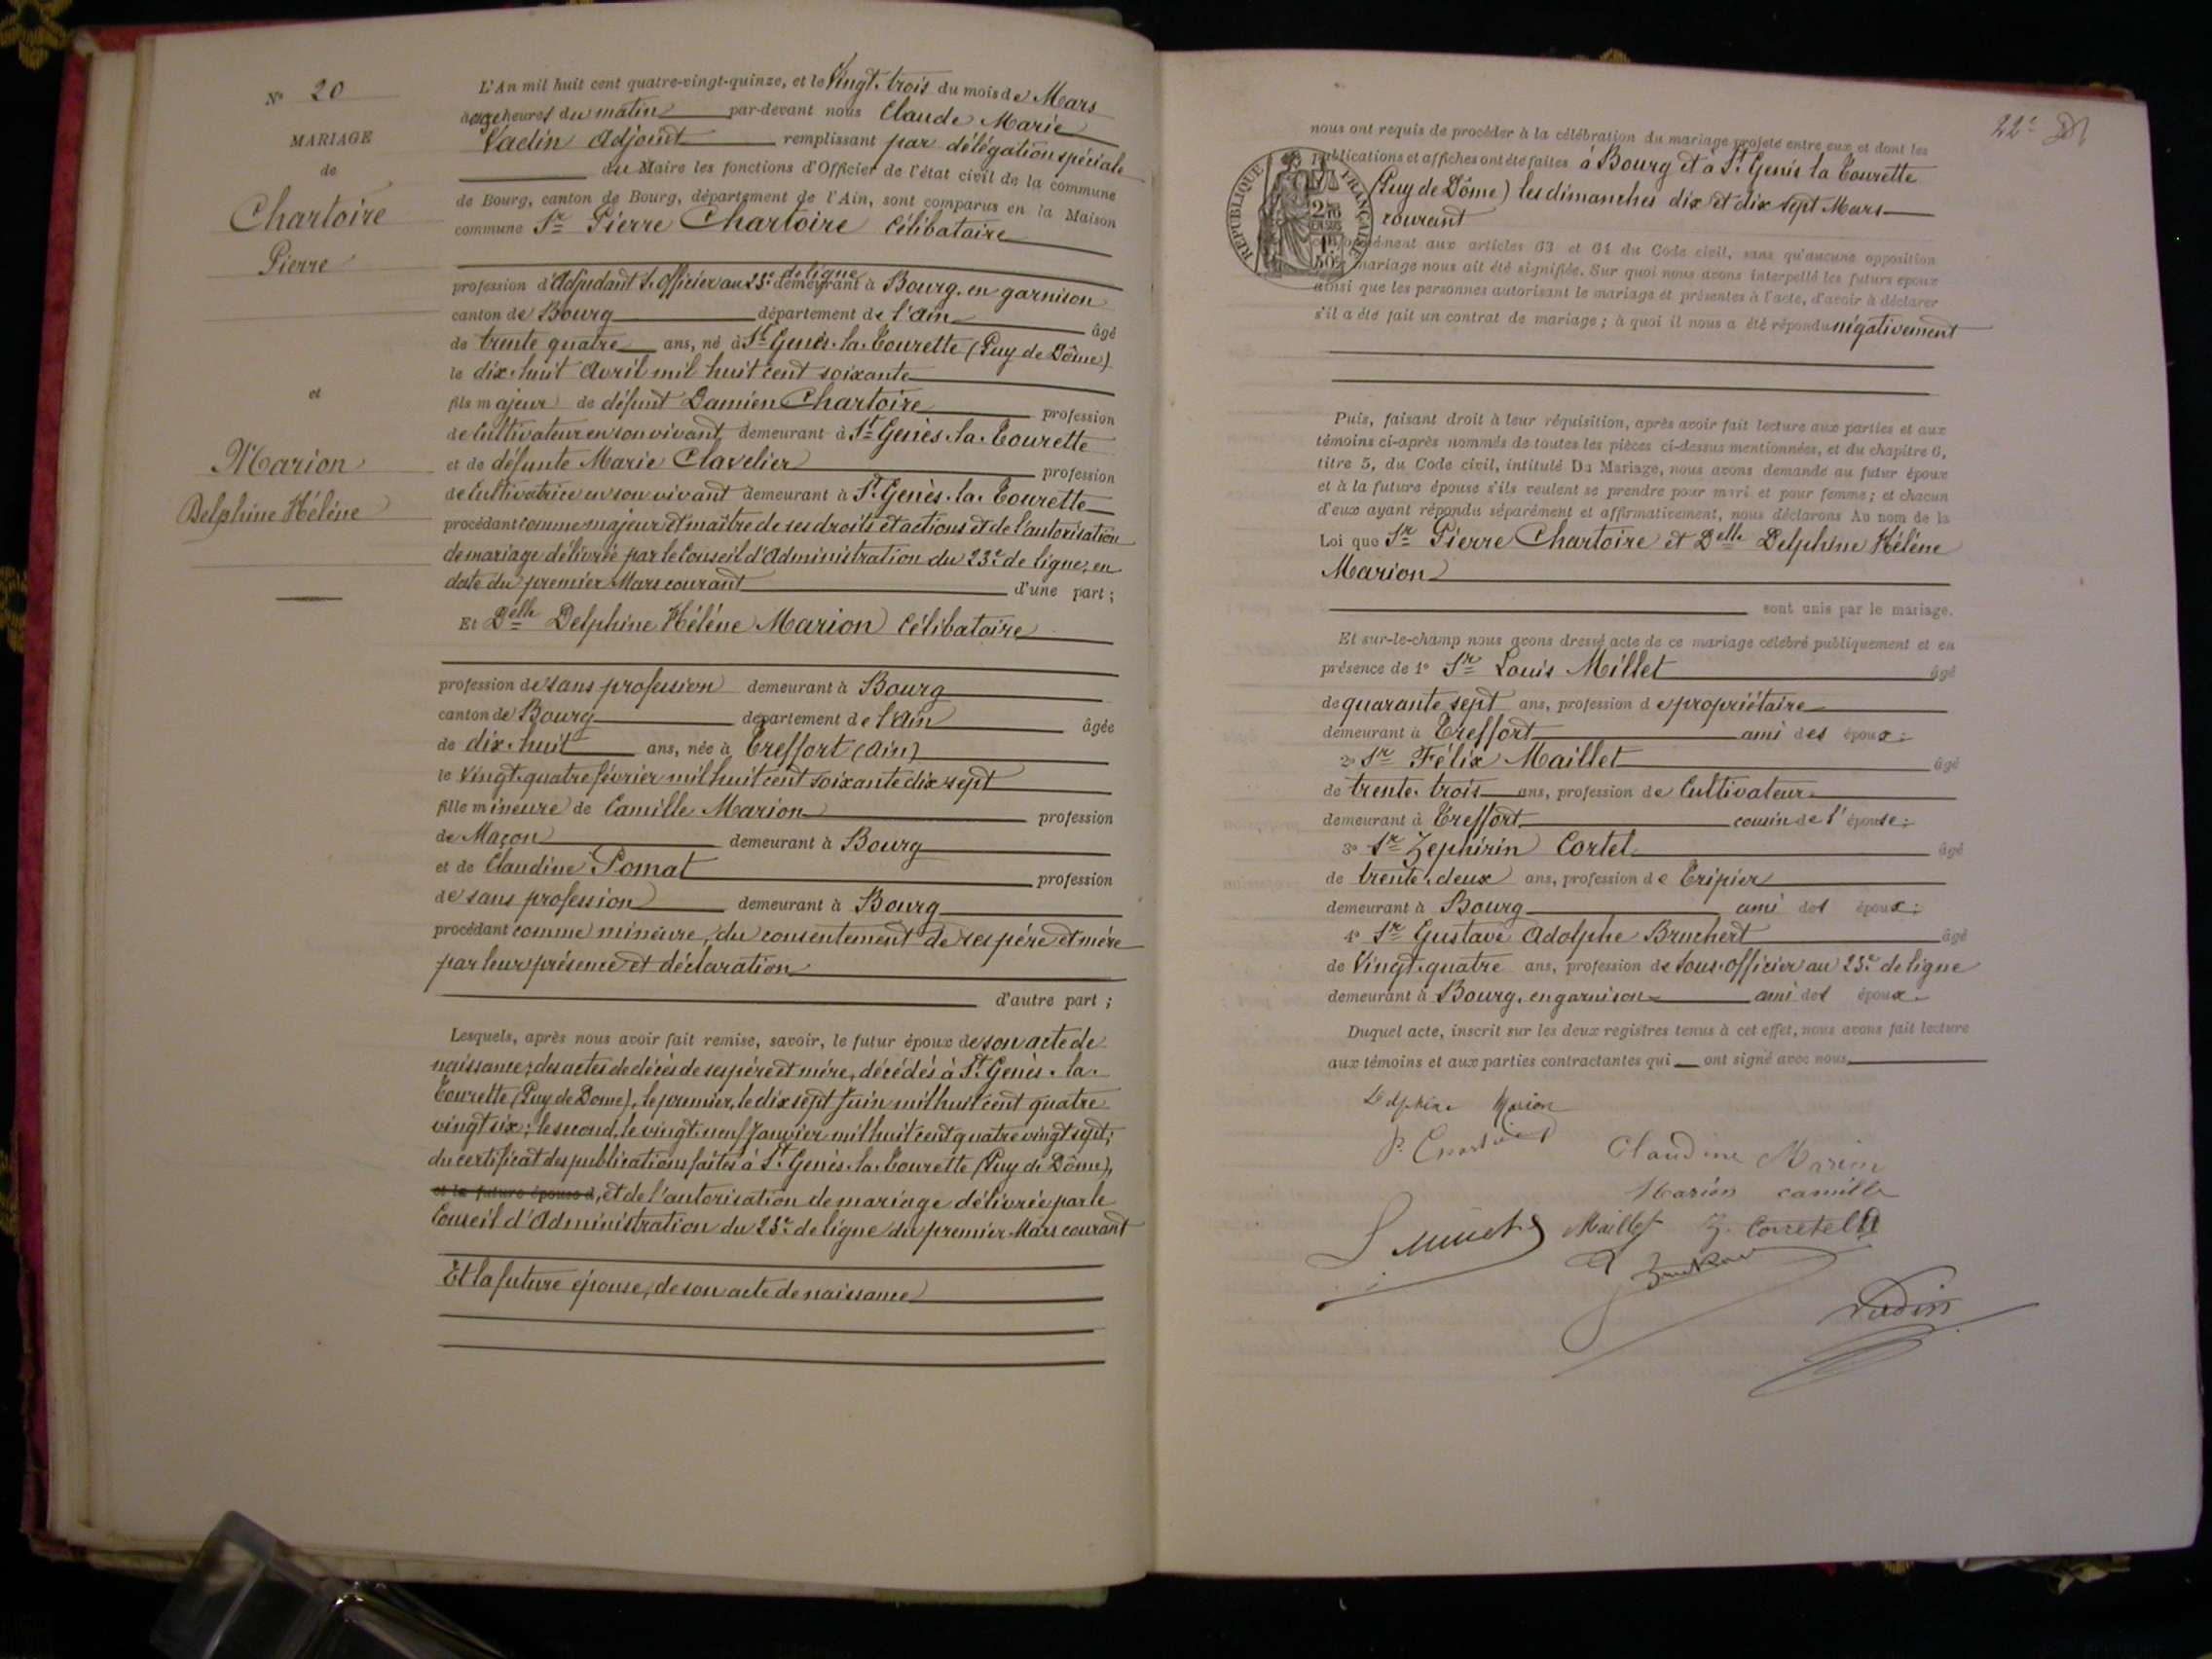 N° 20
MARIAGE
de
Chartoire
Pierre
et
Marion
Delphine Hélène
L'An mil huit cent quatre-vingt-quinze, et le Vingt-trois du mois de Mars
à onze heures du matin par-devant nous Claude Marie
Vadin Adjoint remplissant par délégation spéciale
du Maire les fonctions d'Officier de l'état civil de la commune
de Bourg, canton de Bourg, département de l'Ain, sont comparus en la Maison
commune Sr Pierre Chartoire Célibataire
de ligne
profession d'Adjudant S. Officier au 23e demeurant à Bourg, en garnison
canton de Bourg département de l'Ain âgé
de trente quatre ans, né à St Genès-la-Tourette (Puy de Dôme)
le dix-huit Avril mil huit cent soixante
fils majeur de défunt Damien Chartoire profession
de Cultivateur en son vivant demeurant à St Genès-la-Tourette
et de défunte Marie Clavelier profession
de Cultivatrice en son vivant demeurant à St Genès-la-Tourette
procédant comme majeur et maître de ses droits et actions et de l'autorisation
de mariage délivrée par le Conseil d'Administration du 23e de ligne, en
date du premier Mars courant d'une part;
Et Delle Delphine Hélène Marion Célibataire
profession de sans profession demeurant à Bourg
canton de Bourg département de l'Ain âgée
de dix-huit ans, née à Treffort (Ain)
le Vingt-quatre février mil huit cent soixante dix sept
fille mineure de Camille Marion profession
de Maçon demeurant à Bourg
et de Claudine Pomat profession
de sans profession demeurant à Bourg
procédant comme mineure, du consentement de ses père et mère
par leur présence et déclaration
d'autre part;
Lesquels, après nous avoir fait remise, savoir, le futur époux de son acte de
naissance; des actes de décès de ses père et mère, décédés à St Genès-la-
Tourette (Puy de Dome), le premier, le dix sept Juin mil huit cent quatre
vingt six; le second, le vingt-neuf Janvier mil huit cent quatre vingt sept;
du certificat des publications faites à St Genès-la-Tourette (Puy de Dôme),
et la future épouse d, et de l'autorisation de mariage délivrée par le
Conseil d'Administration du 23e de ligne du premier Mars courant
Et la future épouse, de son acte de naissance
22e
nous ont requis de procéder à la célébration du mariage projeté entre eux et dont les
publications et affiches ont été faites à Bourg et à St Genès la Tourette
(Puy de Dôme) les dimanches dix et dix sept Mars
courant
RÉPUBLIQUE FRANÇAISE
conformément aux articles 63 et 64 du Code civil, sans qu'aucune opposition
mariage nous ait été signifiée. Sur quoi nous avons interpellé les futurs époux
ainsi que les personnes autorisant le mariage et présentes à l'acte, d'avoir à déclarer
s'il a été fait un contrat de mariage; à quoi il nous a été répondu négativement
Puis, faisant droit à leur réquisition, après avoir fait lecture aux parties et aux
témoins ci-après nommés de toutes les pièces ci-dessus mentionnées, et du chapitre 6,
titre 5, du Code civil, intitulé Du Mariage, nous avons demandé au futur époux
et à la future épouse s'ils veulent se prendre pour mari et pour femme; et chacun
d'eux ayant répondu séparément et affirmativement, nous déclarons Au nom de la
Loi que Sr Pierre Chartoire et Delle Delphine Hélène
Marion
sont unis par le mariage.
Et sur-le-champ nous avons dressé acte de ce mariage célébré publiquement et en
présence de 1° Sr Louis Millet âgé
de quarante sept ans, profession de propriétaire
demeurant à Treffort ami des époux;
2° Sr Félix Maillet âgé
de trente-trois ans, profession de Cultivateur
demeurant à Treffort cousin de l'épouse;
3° Sr Zephirin Cortet âgé
de trente-deux ans, profession de Tripier
demeurant à Bourg ami des époux;
4° Sr Gustave Adolphe Bruchert âgé
de Vingt-quatre ans, profession de Sous-Officier au 23e de ligne
demeurant à Bourg, en garnison ami des époux.
Duquel acte, inscrit sur les deux registres tenus à cet effet, nous avons fait lecture
aux témoins et aux parties contractantes qui ont signé avec nous
Delphine Marion
P. Chartoire
Claudine Marion
Marion camille
Maillet
Vadin